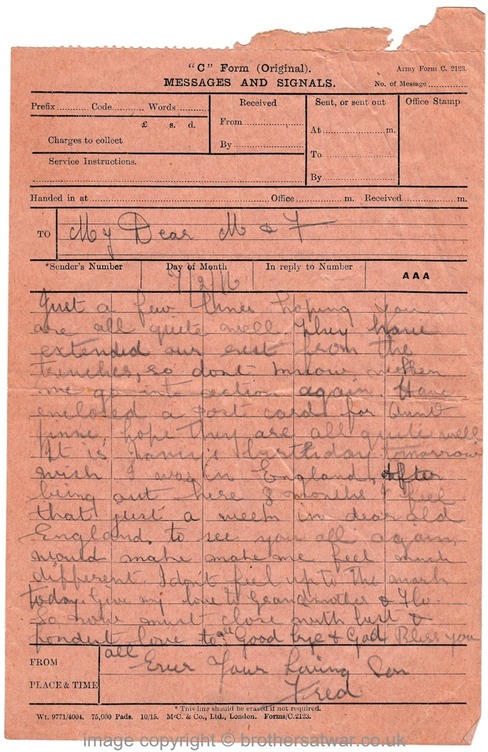 "C" Form (Original). Army Form C. 2123.
MESSAGES AND SIGNALS. No. of Message
Prefix Code Words Received Sent, or sent out Office Stamp
£ s. d. From At m.
Charges to collect To
By
Service Instructions. By
Handed in at Office m. Received m.
TO My Dear M & F
*Sender's Number Day of Month In reply to Number AAA
7/2/16
Just a few lines hoping you
are all quite well they have
extended our rest from the
trenches, so dont know when
we go into action again Have
enclosed a post card for Aunt
hope they are all quite well
It is birthday tomorrow
wish I was in England, After
being out here 8 months I feel
that just a week in dear old
England, to see you all again,
would make make me feel much
different I don't feel up to the mark
today. Give my love to Grandmother & Flo.
So now must close with best &
fondest love to all Good bye & God Bless you
all
FROM Ever Your Loving Son
PLACE & TIME Fred
* This line should be erased if not required.
Wt. 9771/4004. 75,000 Pads. 10/15. McC. & Co., Ltd., London. Forms/C.2123.
image copyright © brothersatwar.co.uk